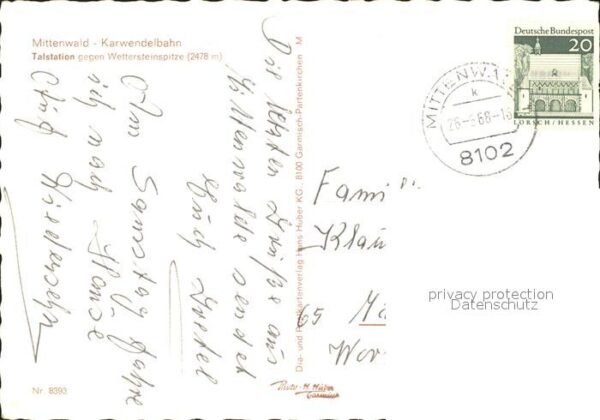 Mittenwald - Karwendelbahn
Talstation gegen Wettersteinspitze (2478 m)
Die letzten Grüße aus
Mittenwalde sendet
Euch
Am Samstag fahre
ich nach Hause
Auf Wiedersehn
Nr. 8393
Dia- und Postkartenverlag Hans Huber KG · 8100 Garmisch-Partenkirchen M
Photo H. Huber
Garmisch
Deutsche Bundespost
20
LORSCH/HESSEN
MITTENWA
k
8102
Fami
Klau
65 Ma
Wor
privacy protection
Datenschutz